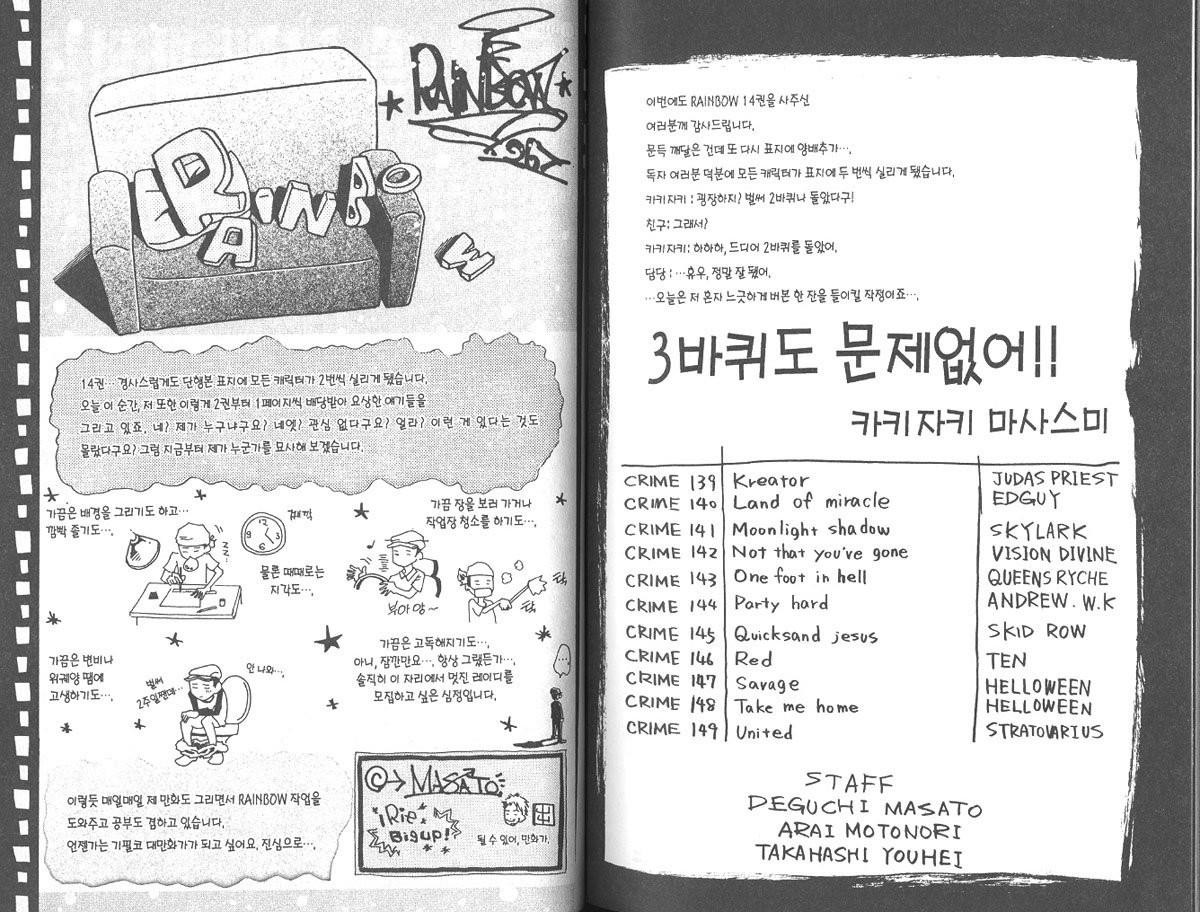 RAINBOW
267
RAINBOW
14권… 경사스럽게도 단행본 표지에 모든 캐릭터가 2번씩 실리게 됐습니다.
오늘 이 순간, 저 또한 이렇게 2권부터 1페이지씩 배당받아 요상한 얘기들을
그리고 있죠. 네? 제가 누구냐구요? 네엣? 관심 없다구요? 얼라? 이런 게 있다는 것도
몰랐다구요? 그럼 지금부터 제가 누군가를 묘사해 보겠습니다.
가끔은 배경을 그리기도 하고…
깜빡 졸기도…,
z z z
째깍
12
3
6
9
물론 때때로는
지각도…,
가끔 장을 보러 가거나
작업장 청소를 하기도…,
부아앙~
탁
탁
가끔은 변비나
위궤양 땜에
고생하기도…,
벌써
2주일짼데…
안 나와…,
가끔은 고독해지기도…,
아니, 잠깐만요…, 항상 그랬든가…,
솔직히 이 자리에서 멋진 레이디를
모집하고 싶은 심정입니다.
이렇듯 매일매일 제 만화도 그리면서 RAINBOW 작업을
도와주고 공부도 겸하고 있습니다.
언젠가는 기필코 대만화가가 되고 싶어요. 진심으로…,
©→ MASATO
¡Rie!
Big up!
出
될 수 있어, 만화가.
이번에도 RAINBOW 14권을 사주신
여러분께 감사드립니다.
문득 깨달은 건데 또 다시 표지에 양배추가…,
독자 여러분 덕분에 모든 캐릭터가 표지에 두 번씩 실리게 됐습니다.
카키자키 : 굉장하지? 벌써 2바퀴나 돌았다구!
친구: 그래서?
카키자키: 하하하, 드디어 2바퀴를 돌았어.
담당 : …휴우, 정말 잘 됐어.
…오늘은 저 혼자 느긋하게 버본 한 잔을 들이킬 작정이죠…,
3바퀴도 문제없어!!
카키자키 마사스미
CRIME 139 Kreator JUDAS PRIEST
CRIME 140 Land of miracle EDGUY
CRIME 141 Moonlight shadow SKYLARK
CRIME 142 Not that you've gone VISION DIVINE
CRIME 143 One foot in hell QUEENSRYCHE
CRIME 144 Party hard ANDREW. W.K
CRIME 145 Quicksand jesus SKID ROW
CRIME 146 Red TEN
CRIME 147 Savage HELLOWEEN
CRIME 148 Take me home HELLOWEEN
CRIME 149 United STRATOVARIUS
STAFF
DEGUCHI MASATO
ARAI MOTONORI
TAKAHASHI YOUHEI